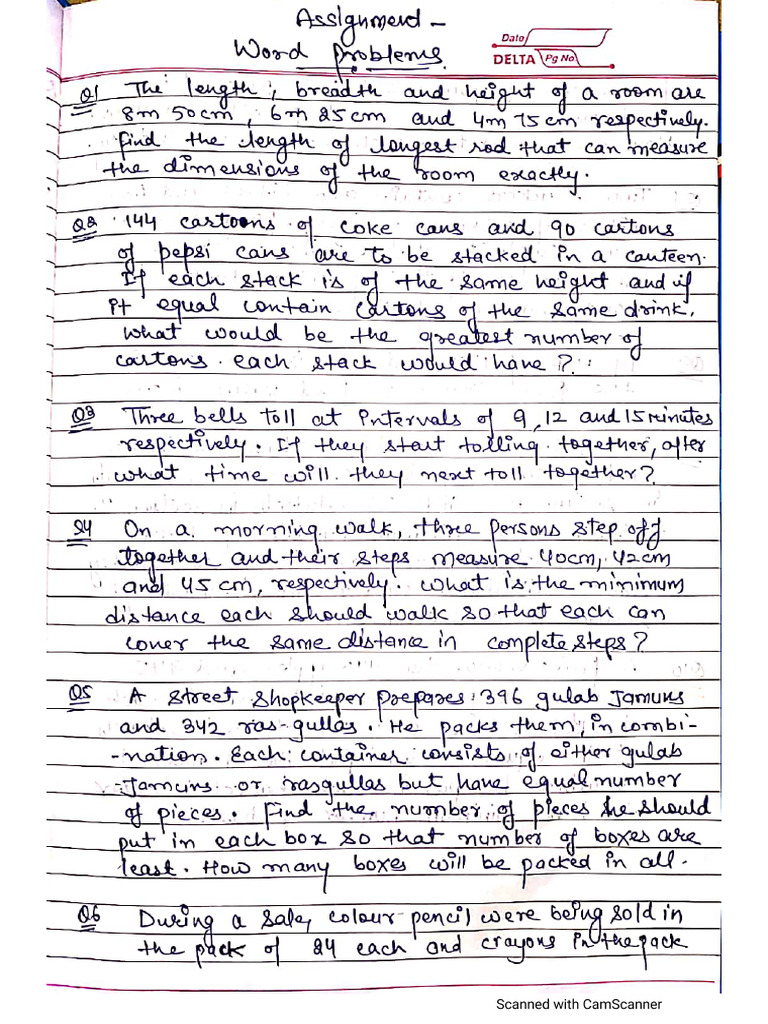 Assignment -
Word problems
Date
DELTA Pg No
Q1 The length, breadth and height of a room are
8m 50cm, 6m 25cm and 4m 75cm respectively.
find the length of longest rod that can measure
the dimensions of the room exactly.
Q2 144 cartoons of coke cans and 90 cartons
of pepsi cans are to be stacked in a canteen.
If each stack is of the same height and if
it equal contain cartons of the same drink,
what would be the greatest number of
cartons each stack would have?
Q3 Three bells toll at intervals of 9, 12 and 15 minutes
respectively. If they start tolling together, after
what time will they next toll together?
Q4 On a morning walk, three persons step off
together and their steps measure 40cm, 42cm
and 45 cm, respectively. What is the minimum
distance each should walk so that each can
cover the same distance in complete steps?
Q5 A street shopkeeper prepares 396 gulab Jamuns
and 342 ras-gullas. He packs them, in combi-
-nation. Each container consists of either gulab
Jamuns or rasgullas but have equal number
of pieces. Find the number of pieces he should
put in each box so that number of boxes are
least. How many boxes will be packed in all.
Q6 During a sale, colour pencil were being sold in
the pack of 24 each and crayons in the pack
Scanned with CamScanner